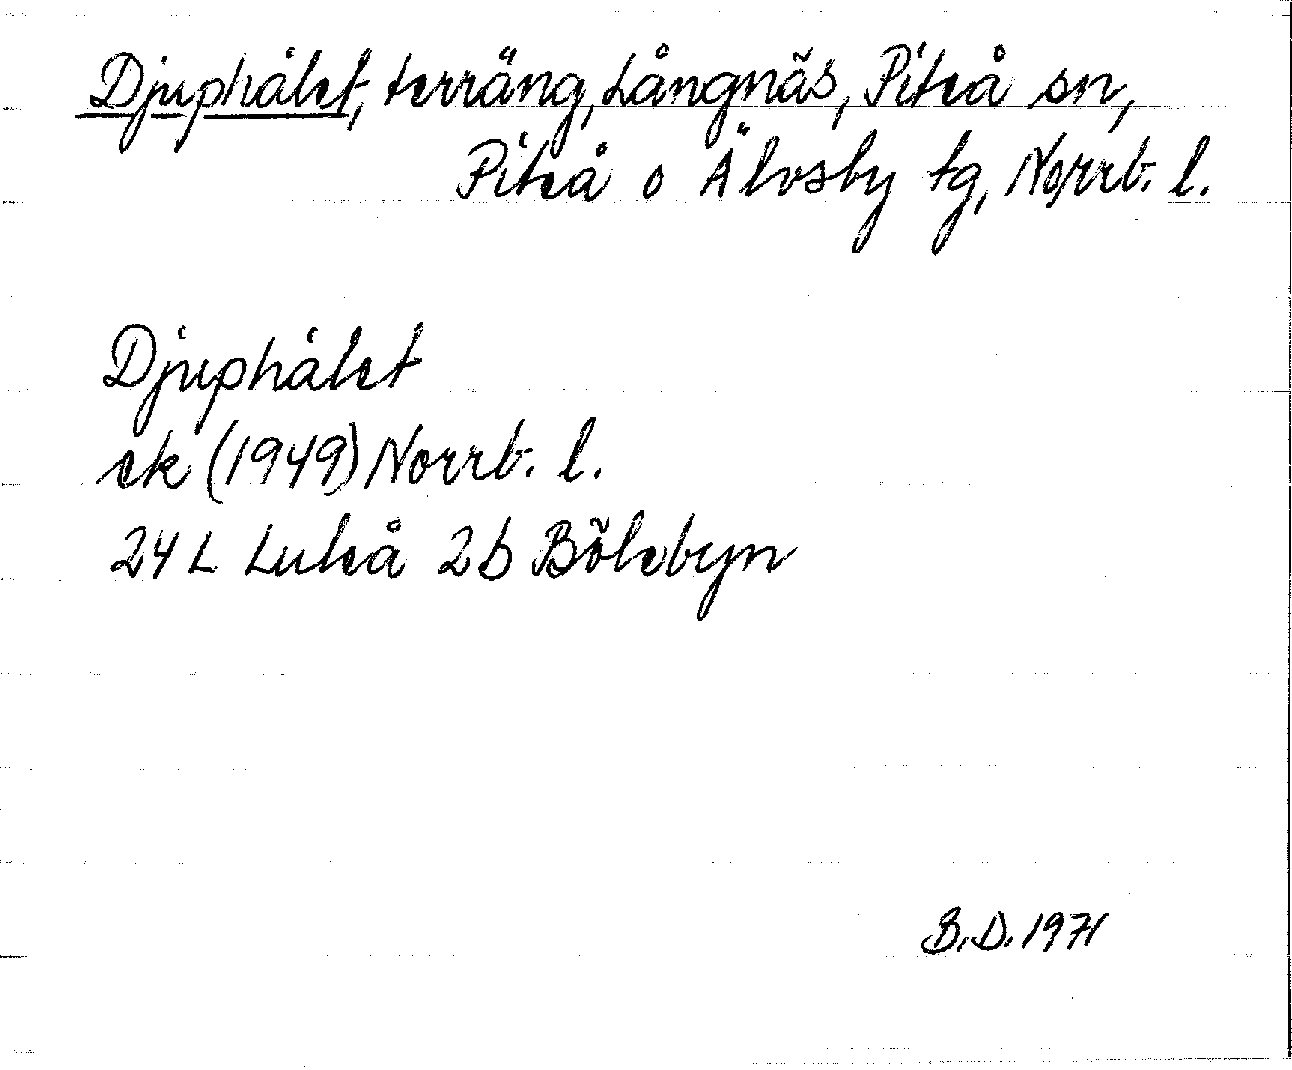 Djuphålet, terräng, Långnäs, Piteå sn,
Piteå o Älvsby tg, Norrb. l.
Djuphålet
ek (1949) Norrb. l.
24 L Luleå 2b Bölebyn
B.D. 1971